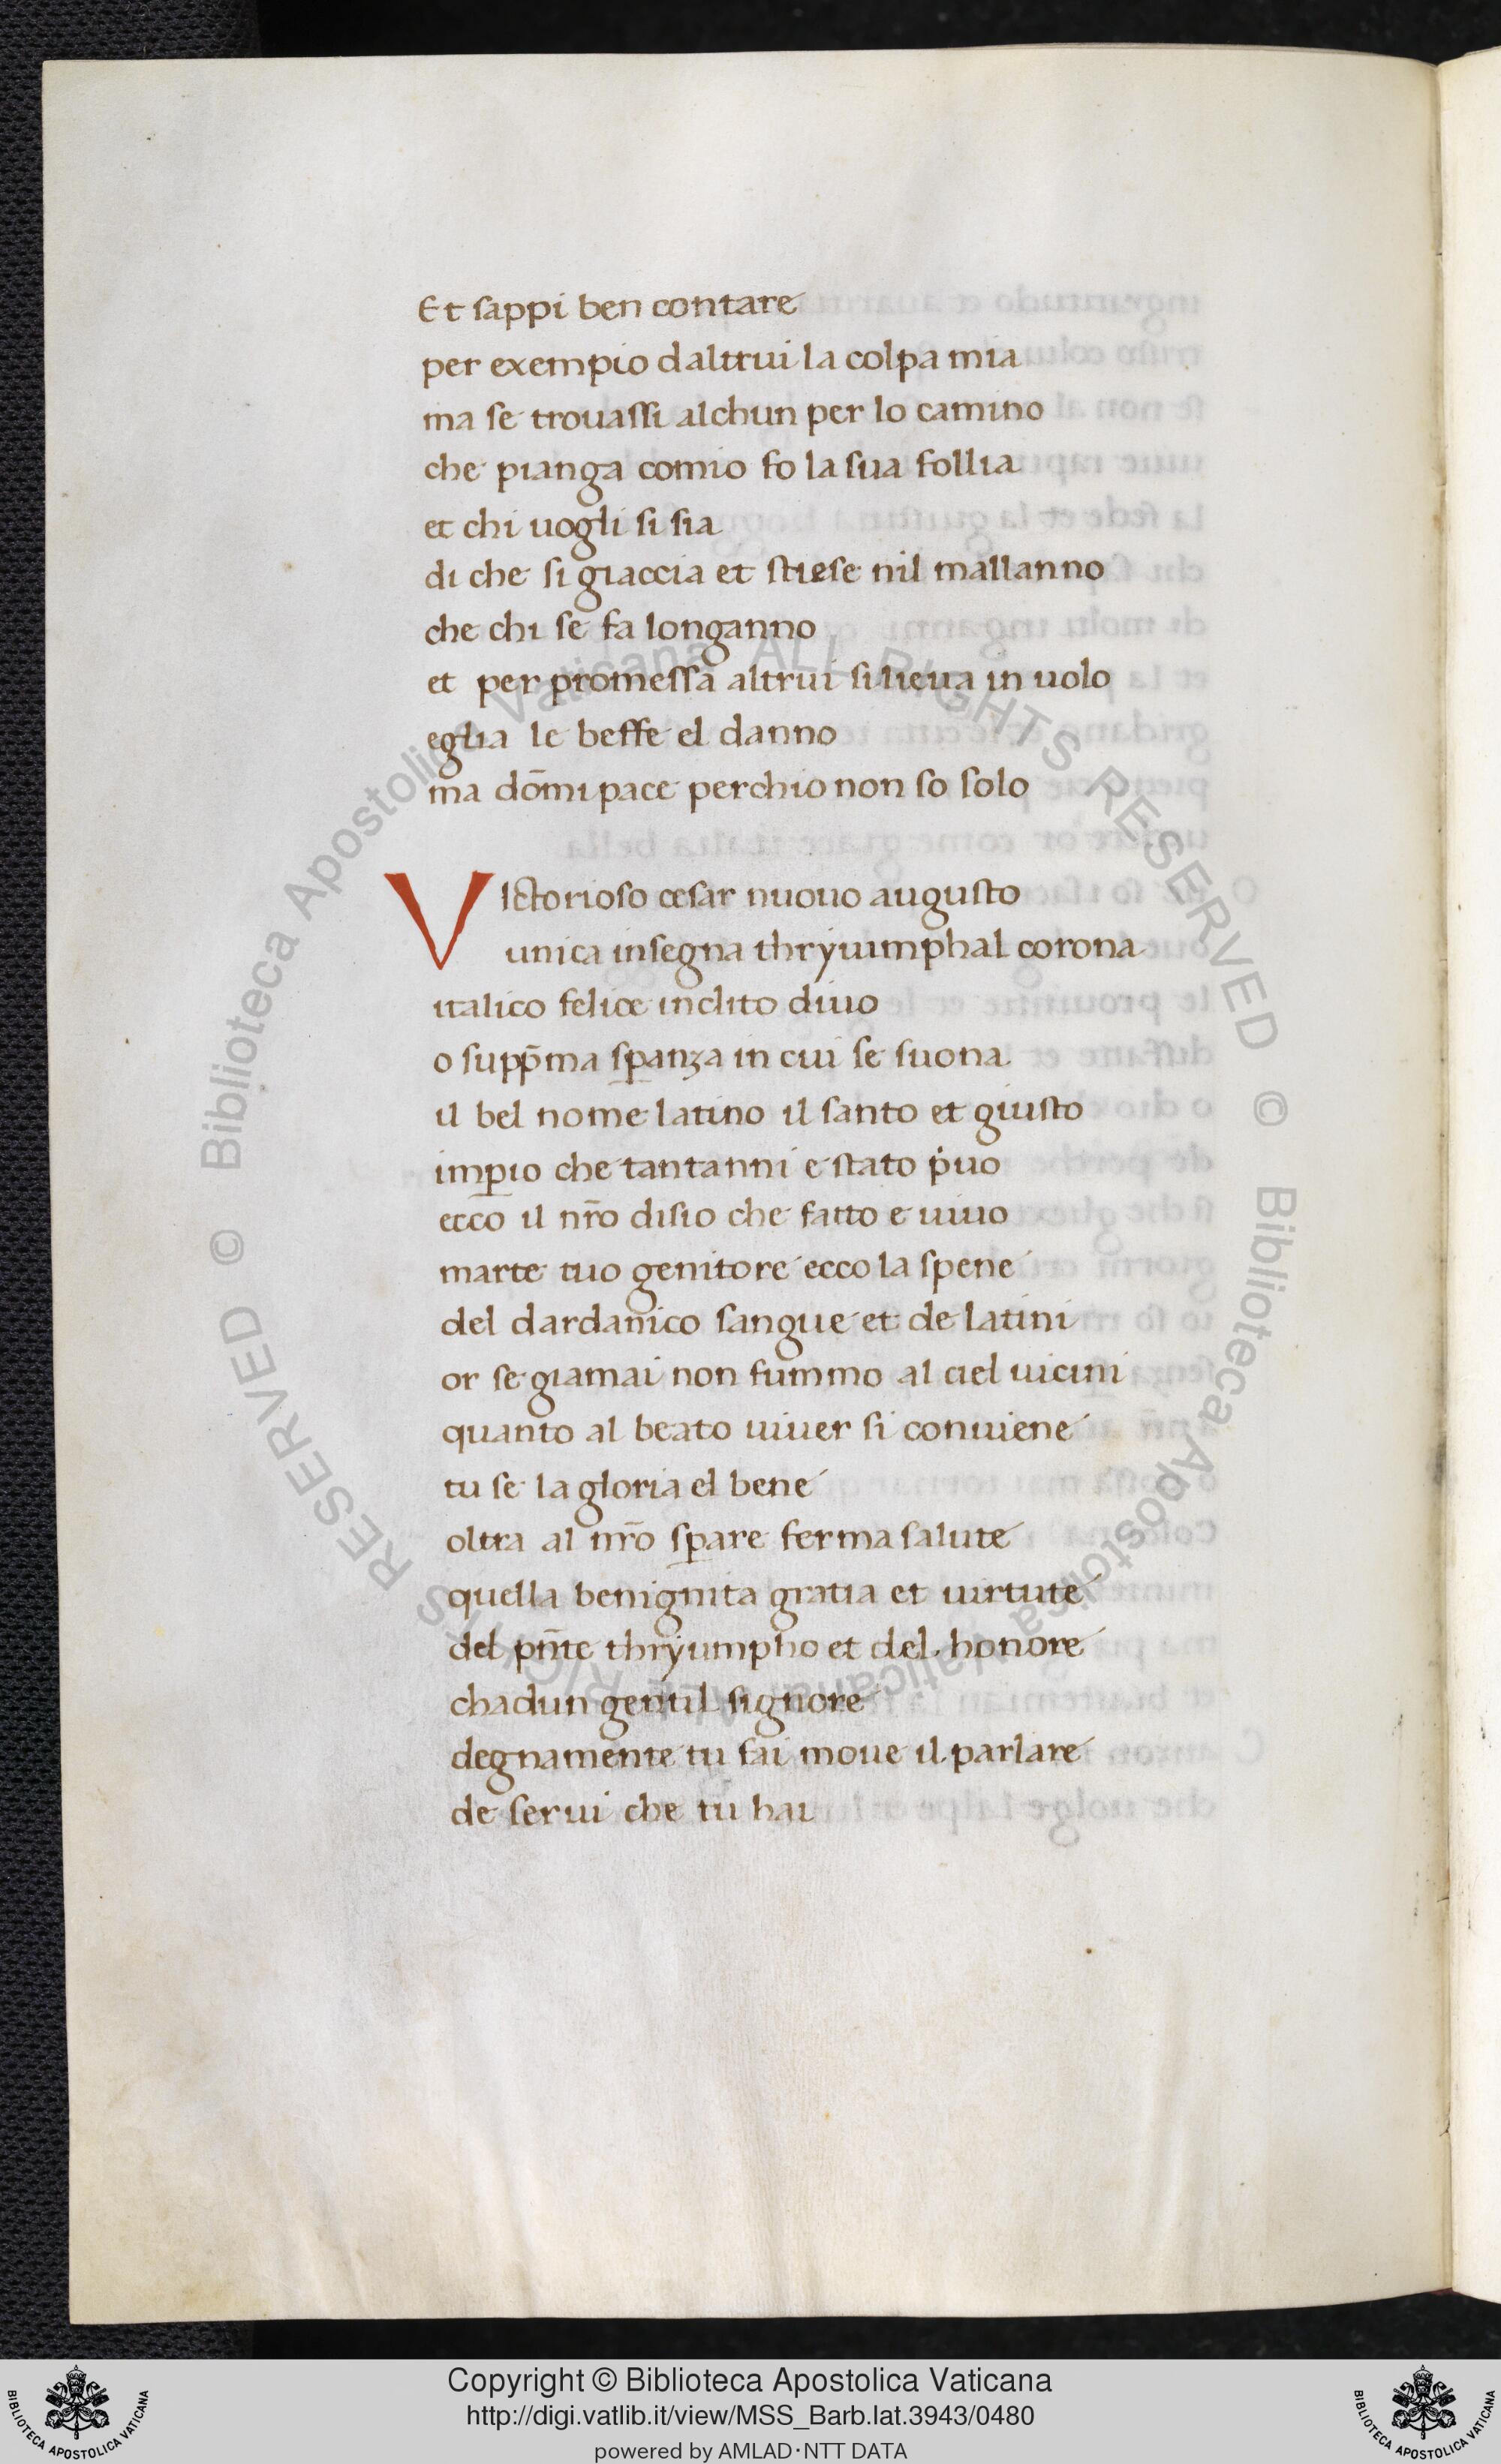 Et sappi ben contare
per exempio daltrui la colpa mia
ma se trouassi alchun per lo camino
che pianga comio fo la sua follia
et chi uogli si sia
di che si giaccia et stiese nil mallanno
che chi se fa longanno
et per promessa altrui si lieua in uolo
eglia le beffe el danno
ma dōmi pace perchio non so solo
VIctorioso cesar nuouo augusto
unica insegna thryuumphal corona
italico felice inclito diuo
o supp̄ma sꝑanza in cui se suona
il bel nome latino il santo et giusto
imꝑio che tantanni e stato pͥuo
ecco il nr̄o disio che fatto e uiuo
marte tuo genitore ecco la spene
del dardanico sangue et de latini
or se giamai non fummo al ciel uicini
quanto al beato uiuer si conuiene
tu se la gloria el bene
oltra al nr̄o sꝑare ferma salute
quella benignita gratia et uirtute
del pn̄te thryumpho et del honore
chadun gentil signore
degnamente tu fai moue il parlare
de serui che tu hai
© Biblioteca Apostolica Vaticana ALL RIGHTS RESERVED
© Biblioteca Apostolica Vaticana ALL RIGHTS RESERVED
Copyright © Biblioteca Apostolica Vaticana
http://digi.vatlib.it/view/MSS_Barb.lat.3943/0480
powered by AMLAD·NTT DATA
BIBLIOTECA APOSTOLICA VATICANA
BIBLIOTECA APOSTOLICA VATICANA